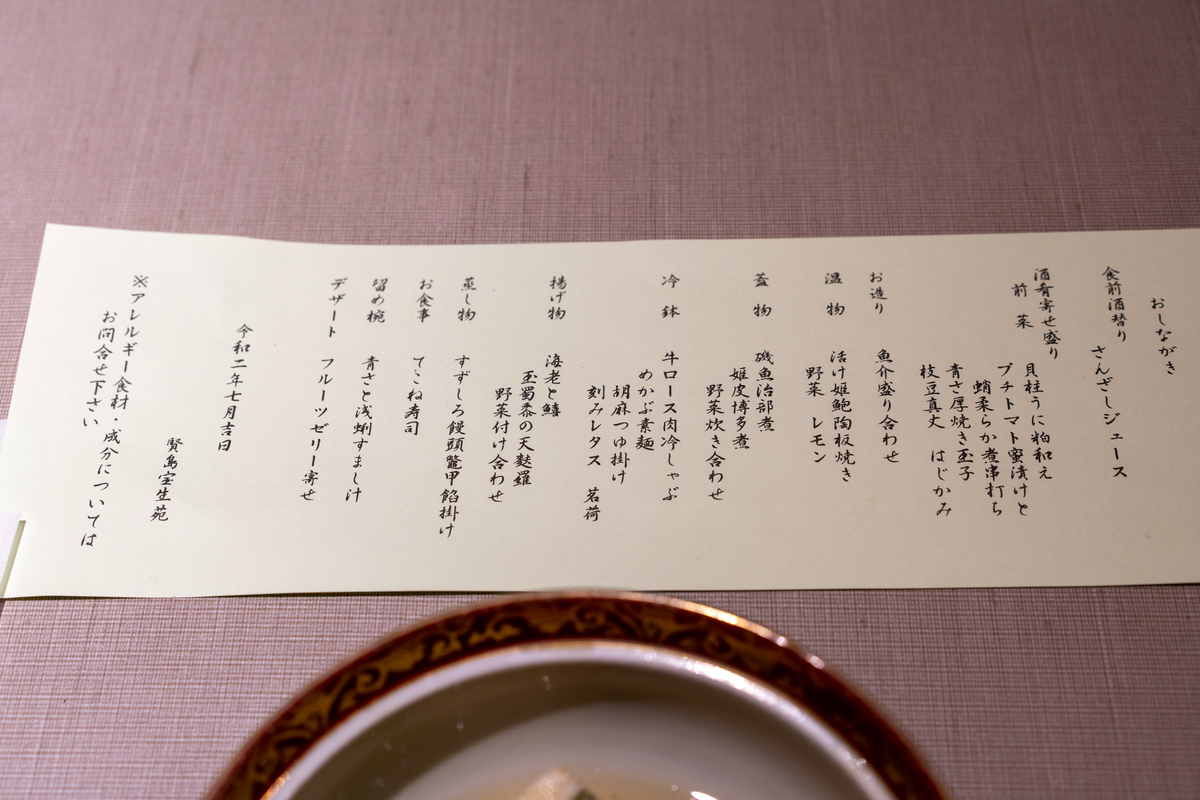 おしながき
食前酒替り
さんざしジュース
酒肴寄せ盛り
前菜
貝柱うに粕和え
プチトマト蜜漬けと
蛸柔らか煮串打ち
青さ厚焼き玉子
枝豆真丈 はじかみ
お造り 魚介盛り合わせ
温物 活け姫鮑陶板焼き
野菜 レモン
蓋物 磯魚治部煮
姫皮博多煮
野菜炊き合わせ
冷鉢 牛ロース肉冷しゃぶ
めかぶ素麺
胡麻つゆ掛け
刻みレタス 茗荷
揚げ物 海老と鱚
玉蜀黍の天麩羅
野菜付け合わせ
蒸し物 すずしろ饅頭鼈甲餡掛け
お食事 てこね寿司
留め椀 青さと浅蜊すまし汁
デザート フルーツゼリー寄せ
令和二年七月吉日
賢島宝生苑
※アレルギー食材・成分については
お問合せ下さい